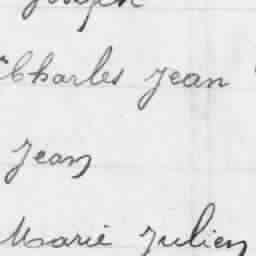 Joseph
"Charles Jean "
Jean
Marie Julien